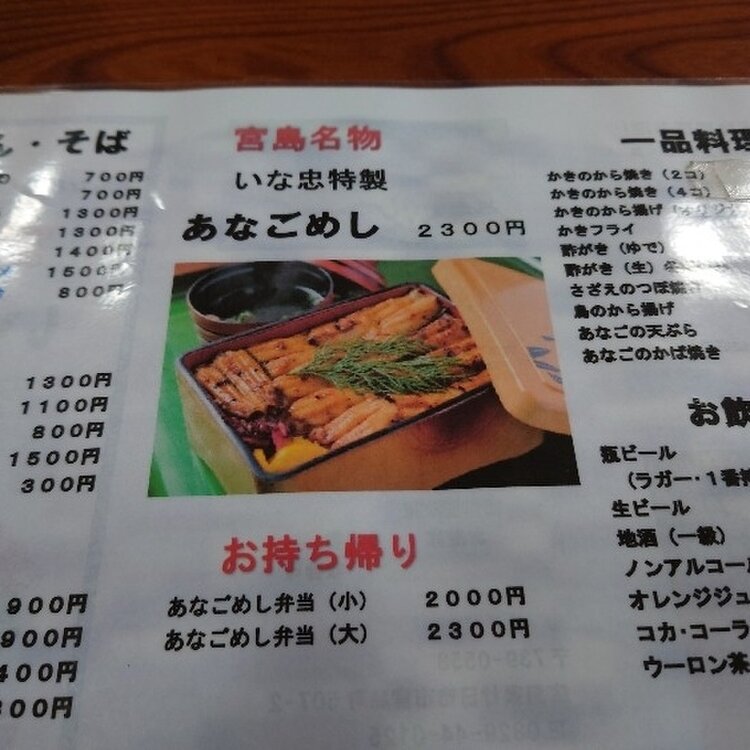 ・そば
700円
700円
1300円
1300円
1400円
1500円
800円
1300円
1100円
800円
1500円
300円
900円
900円
400円
宮島名物
いな忠特製
あなごめし 2300円
お持ち帰り
あなごめし弁当（小） 2000円
あなごめし弁当（大） 2300円
一品料理
かきのから焼き（2コ）
かきのから焼き（4コ）
かきのから揚げ
かきフライ
酢がき（ゆで）
酢がき（生）
さざえのつぼ焼き
鳥のから揚げ
あなごの天ぷら
あなごのかば焼き
お飲
瓶ビール
（ラガー・1番搾
生ビール
地酒（一級）
ノンアルコール
オレンジジュ
コカ・コーラ
ウーロン茶